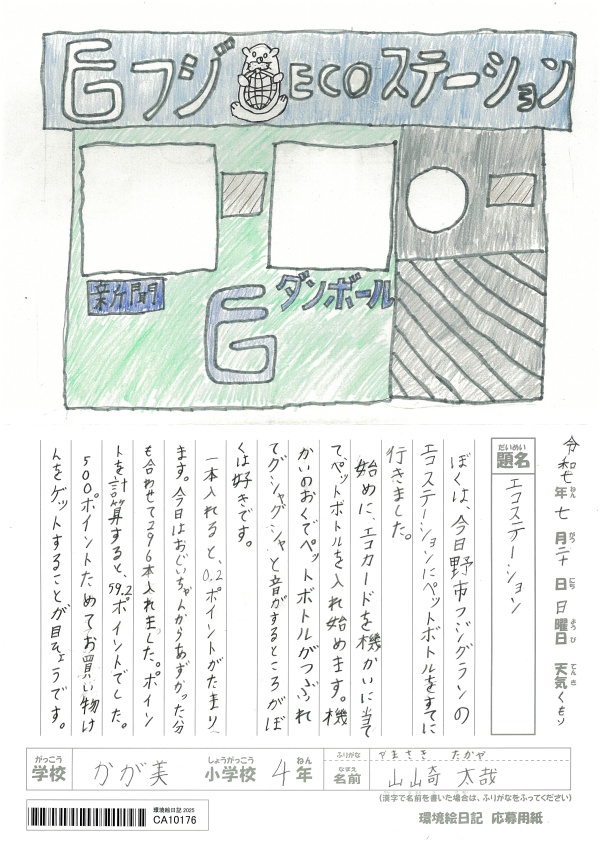 フジ ECOステーション
新聞
ダンボール
令和七年七月二十日日曜日 天気くもり
ねん
がつ
にち
ようび
てんき
だいめい
題名
エコステーション
ぼくは、今日野市フジグランの
エコステーションにペットボトルをすてに
行きました。
始めに、エコカードを機かいに当て
て、ペットボトルを入れ始めます。機
かいのおくでペットボトルがつぶれ
てグシャグシャと音がするところがぼ
くは好きです。
一本入れると、0.2ポイントがたまり
ます。今日はおじいちゃんからあずかった分
も合わせて296本入れました。ポイン
トを計算すると、59.2ポイントでした。
500ポイントためてお買い物け
んをゲットすることが目ひょうです。
がっこう
学校
かが美
しょうがっこう
小学校
4
ねん
年
ふりがな
やまさき たかや
なまえ
名前
山崎 太哉
(漢字で名前を書いた場合は、ふりがなをふってください)
環境絵日記 2025
CA10176
環境絵日記 応募用紙